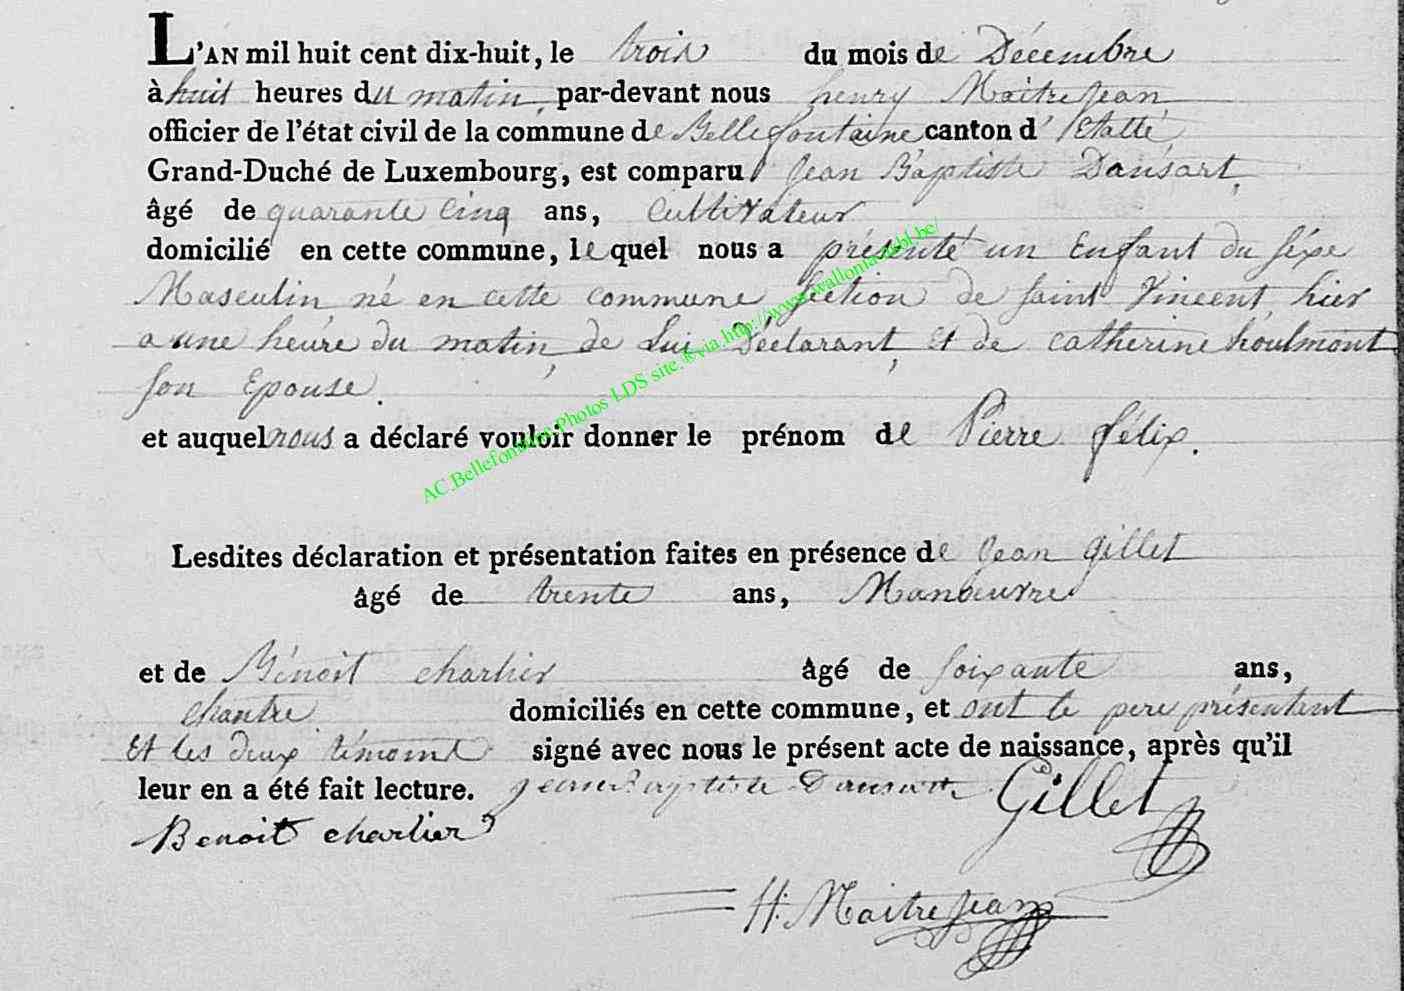 L'AN mil huit cent dix-huit, le trois du mois de Décembre
à huit heures du matin, par-devant nous henry Maitrejean
officier de l'état civil de la commune de Bellefontaine canton d'Etalle
Grand-Duché de Luxembourg, est comparu Jean Baptiste Dansart,
âgé de quarante Cinq ans, Cultivateur
domicilié en cette commune, lequel nous a présenté un Enfant du séxe
Masculin né en cette commune section de saint Vincent hier
a une heure du matin, de Lui Déclarant, Et de catherine houlmont
son Epouse.
et auquel nous a déclaré vouloir donner le prénom de Pierre félix.
AC.Bellefontaine.Photos LDS site.®via.http://www.wallonia.asbl.be/
Lesdites déclaration et présentation faites en présence de Jean Gillet
âgé de trente ans, Manœuvre
et de Bénoit charlier âgé de soixante ans,
chantre domiciliés en cette commune, et ont le pere présentent
Et les deux témoint signé avec nous le présent acte de naissance, après qu'il
leur en a été fait lecture. jean Baptiste Dansartt Gillet
Benoit charlier
H. Maitrejean